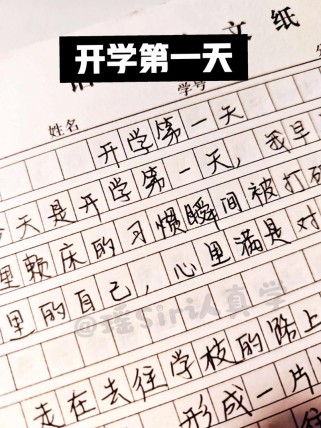 文纸
开学第一天
学号
姓名
开学第一天
今天是开学第一天，我早
里赖床的习惯瞬间被打破
里的自己，心里满是对
@瑶Sir认真学
走在去往学校的路上
形成一片